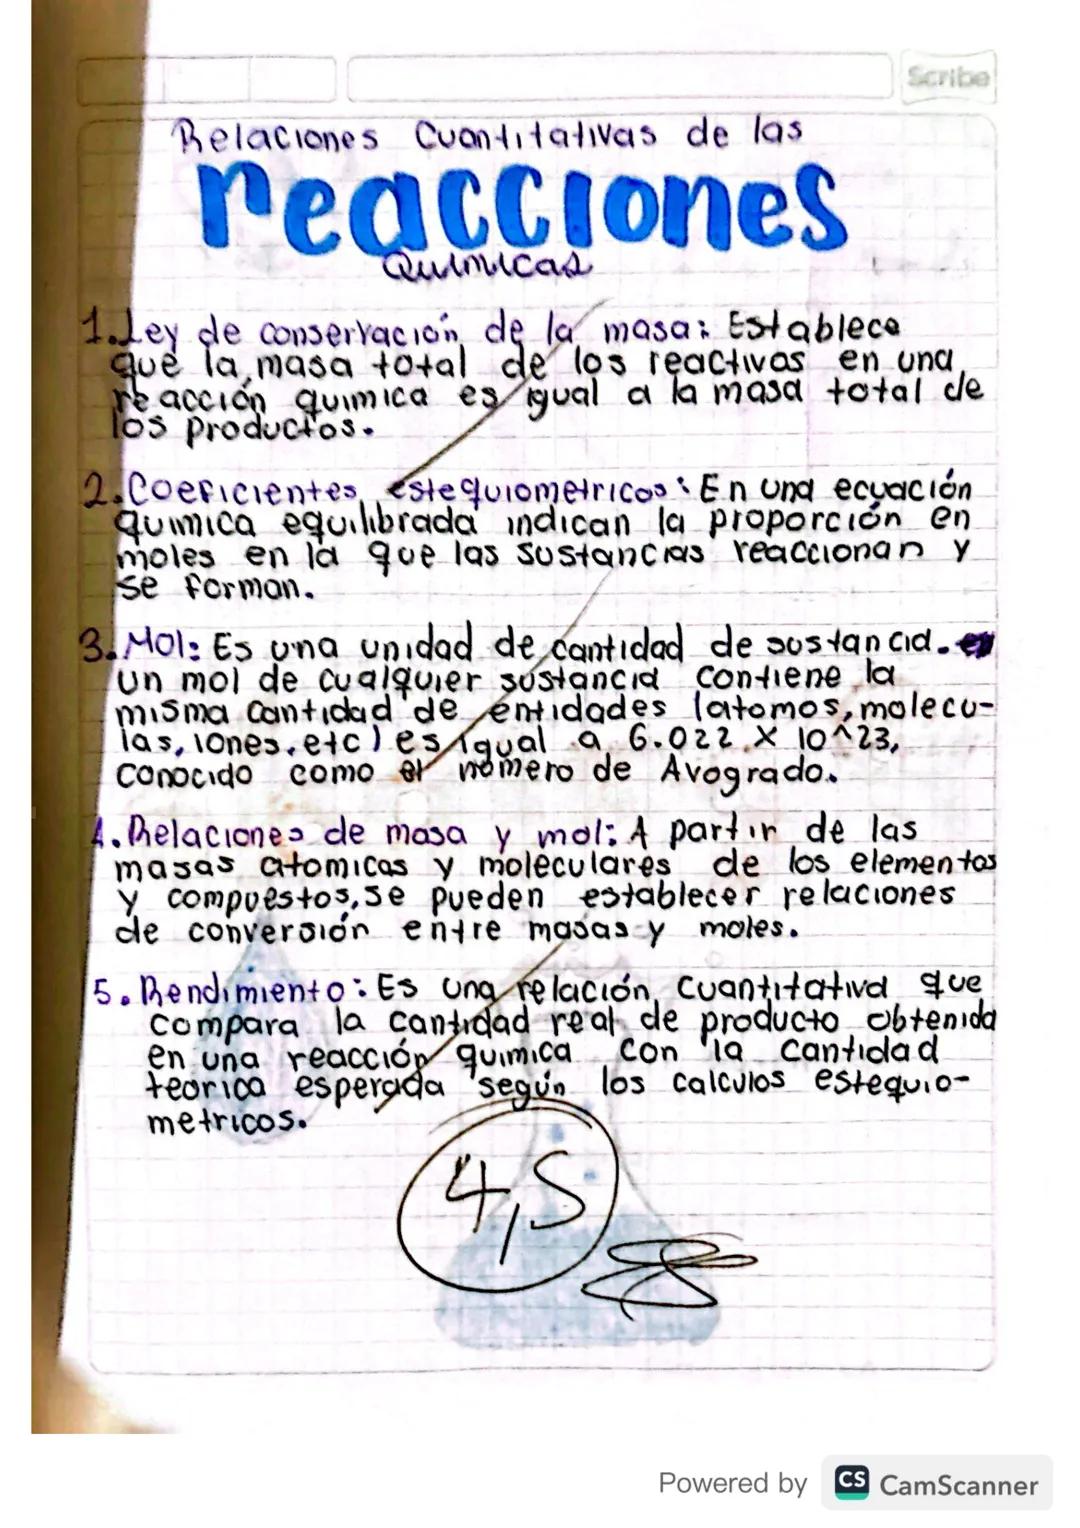 Scribe
Relaciones Cuantitativas de las
reacciones
Quimicas
1. Ley de conservación de la masa: Establece
que la masa total de los reactivos en una
reacción quimica es igual a la masa total de
los productos.
2. Coeficientes estequiometricos: En una ecuación
quimica equilibrada indican la proporción en
moles en la que las sustancias reaccionan y
se forman.
3. Mol: Es una unidad de cantidad de sustancia.
un mol de cualquier sustancia contiene la
misma cantidad de entidades (atomos, molecu-
las, iones, etc) es igual a 6.022 X 10^23,
conocido como el número de Avogrado.
4. Relaciones de masa y mol: A partir de las
masas atomicas y moleculares de los elementos
y compuestos, se pueden establecer relaciones
de conversión entre masas y moles.
5. Rendimiento: Es una relación cuantitativa que
compara la cantidad real de producto obtenida
en una reacción quimica con la cantidad
teorica esperada según los calculos estequio-
metricos.
4,5
Powered by CS CamScanner